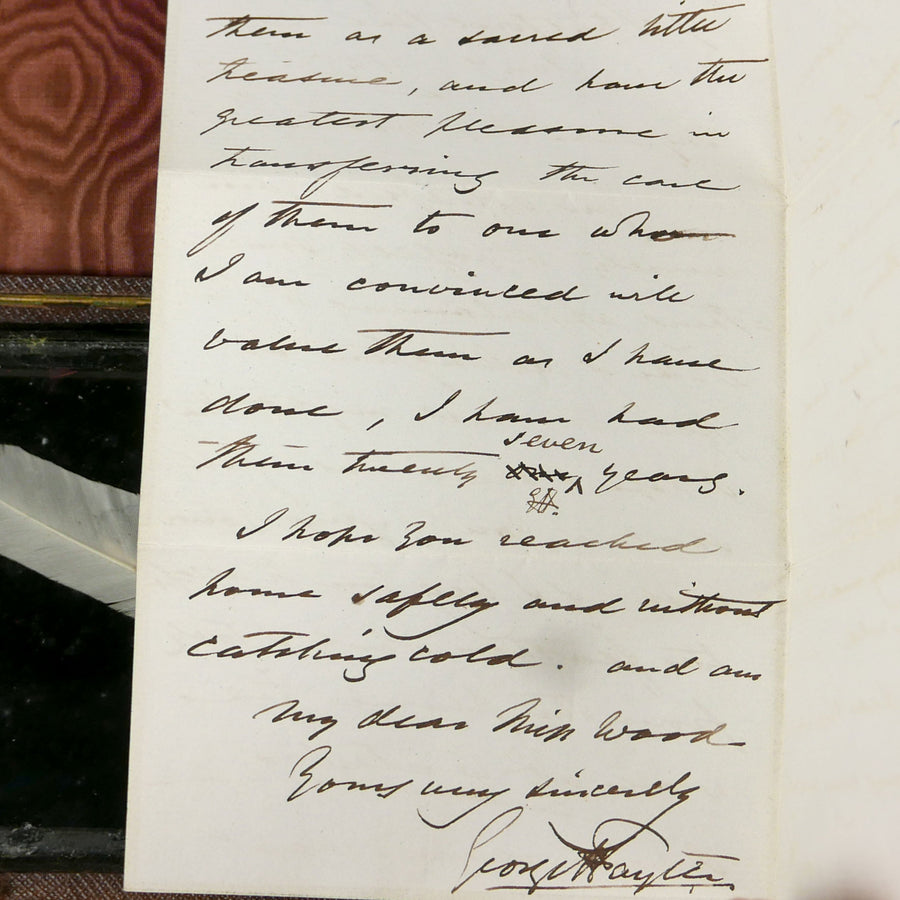 them as a sacred little
treasure, and have the
greatest pleasure in
transferring the care
of them to one who
I am convinced will
value them as I have
done, I have had
them twenty seven years.
I hope you reached
home safely and without
catching cold. and am
my dear Miss Wood
Yours very sincerely
George Hayter